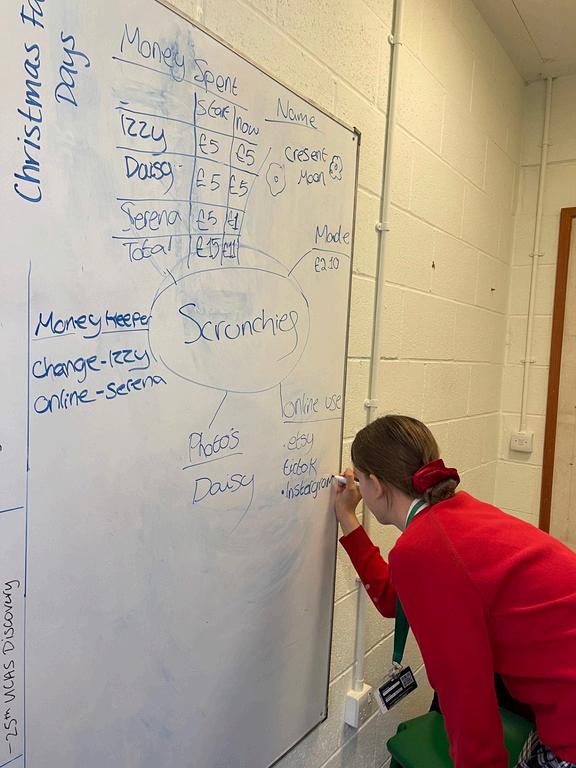 Christmas Fa
Days
Money Spent
Start now
Izzy £5 £5
Daisy £5 £5
Serena £5 £1
Total £15 £11
Name
Cresent
Moon
Made
£2.10
Scrunchies
Money Keeper
change-Izzy
online-Serena
Photo's
Daisy
online use
•etsy
tictok
•Instargram
-25th UCAS Discovery